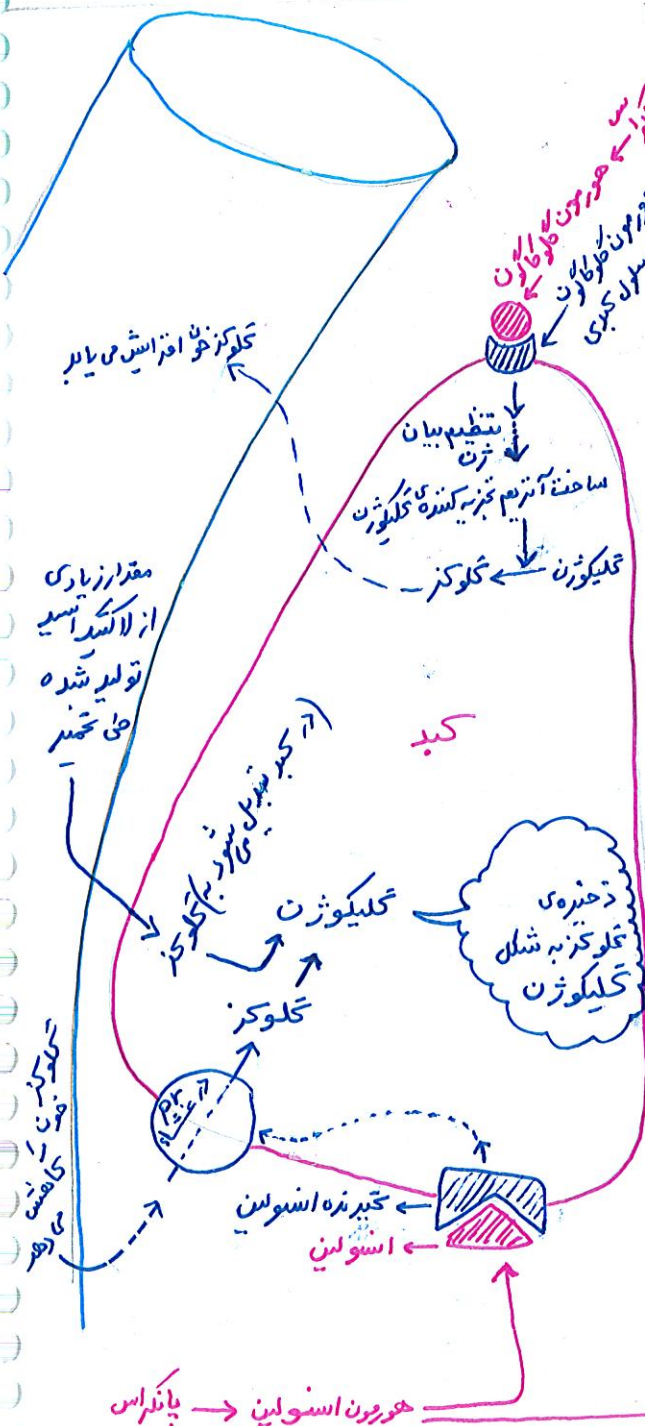 هورمون گلوکاگون
گلوکز خون افزایش می یابد
تنظیم بیان
ژن
ساخت آنزیم تجزیه کننده ی گلیکوژن
گلیکوژن ← گلوکز
مقدار زیادی
از لاکتیک اسید
تولید شده
طی تخمیر
کبد
(در کبد تبدیل می شود به) گلوکز
گلیکوژن
ذخیره ی
گلوکز به شکل
گلیکوژن
گلوکز
گلوکز
خون را
کاهش
می دهد
در غشاء
گیرنده انسولین
انسولین
هورمون انسولین ← پانکراس